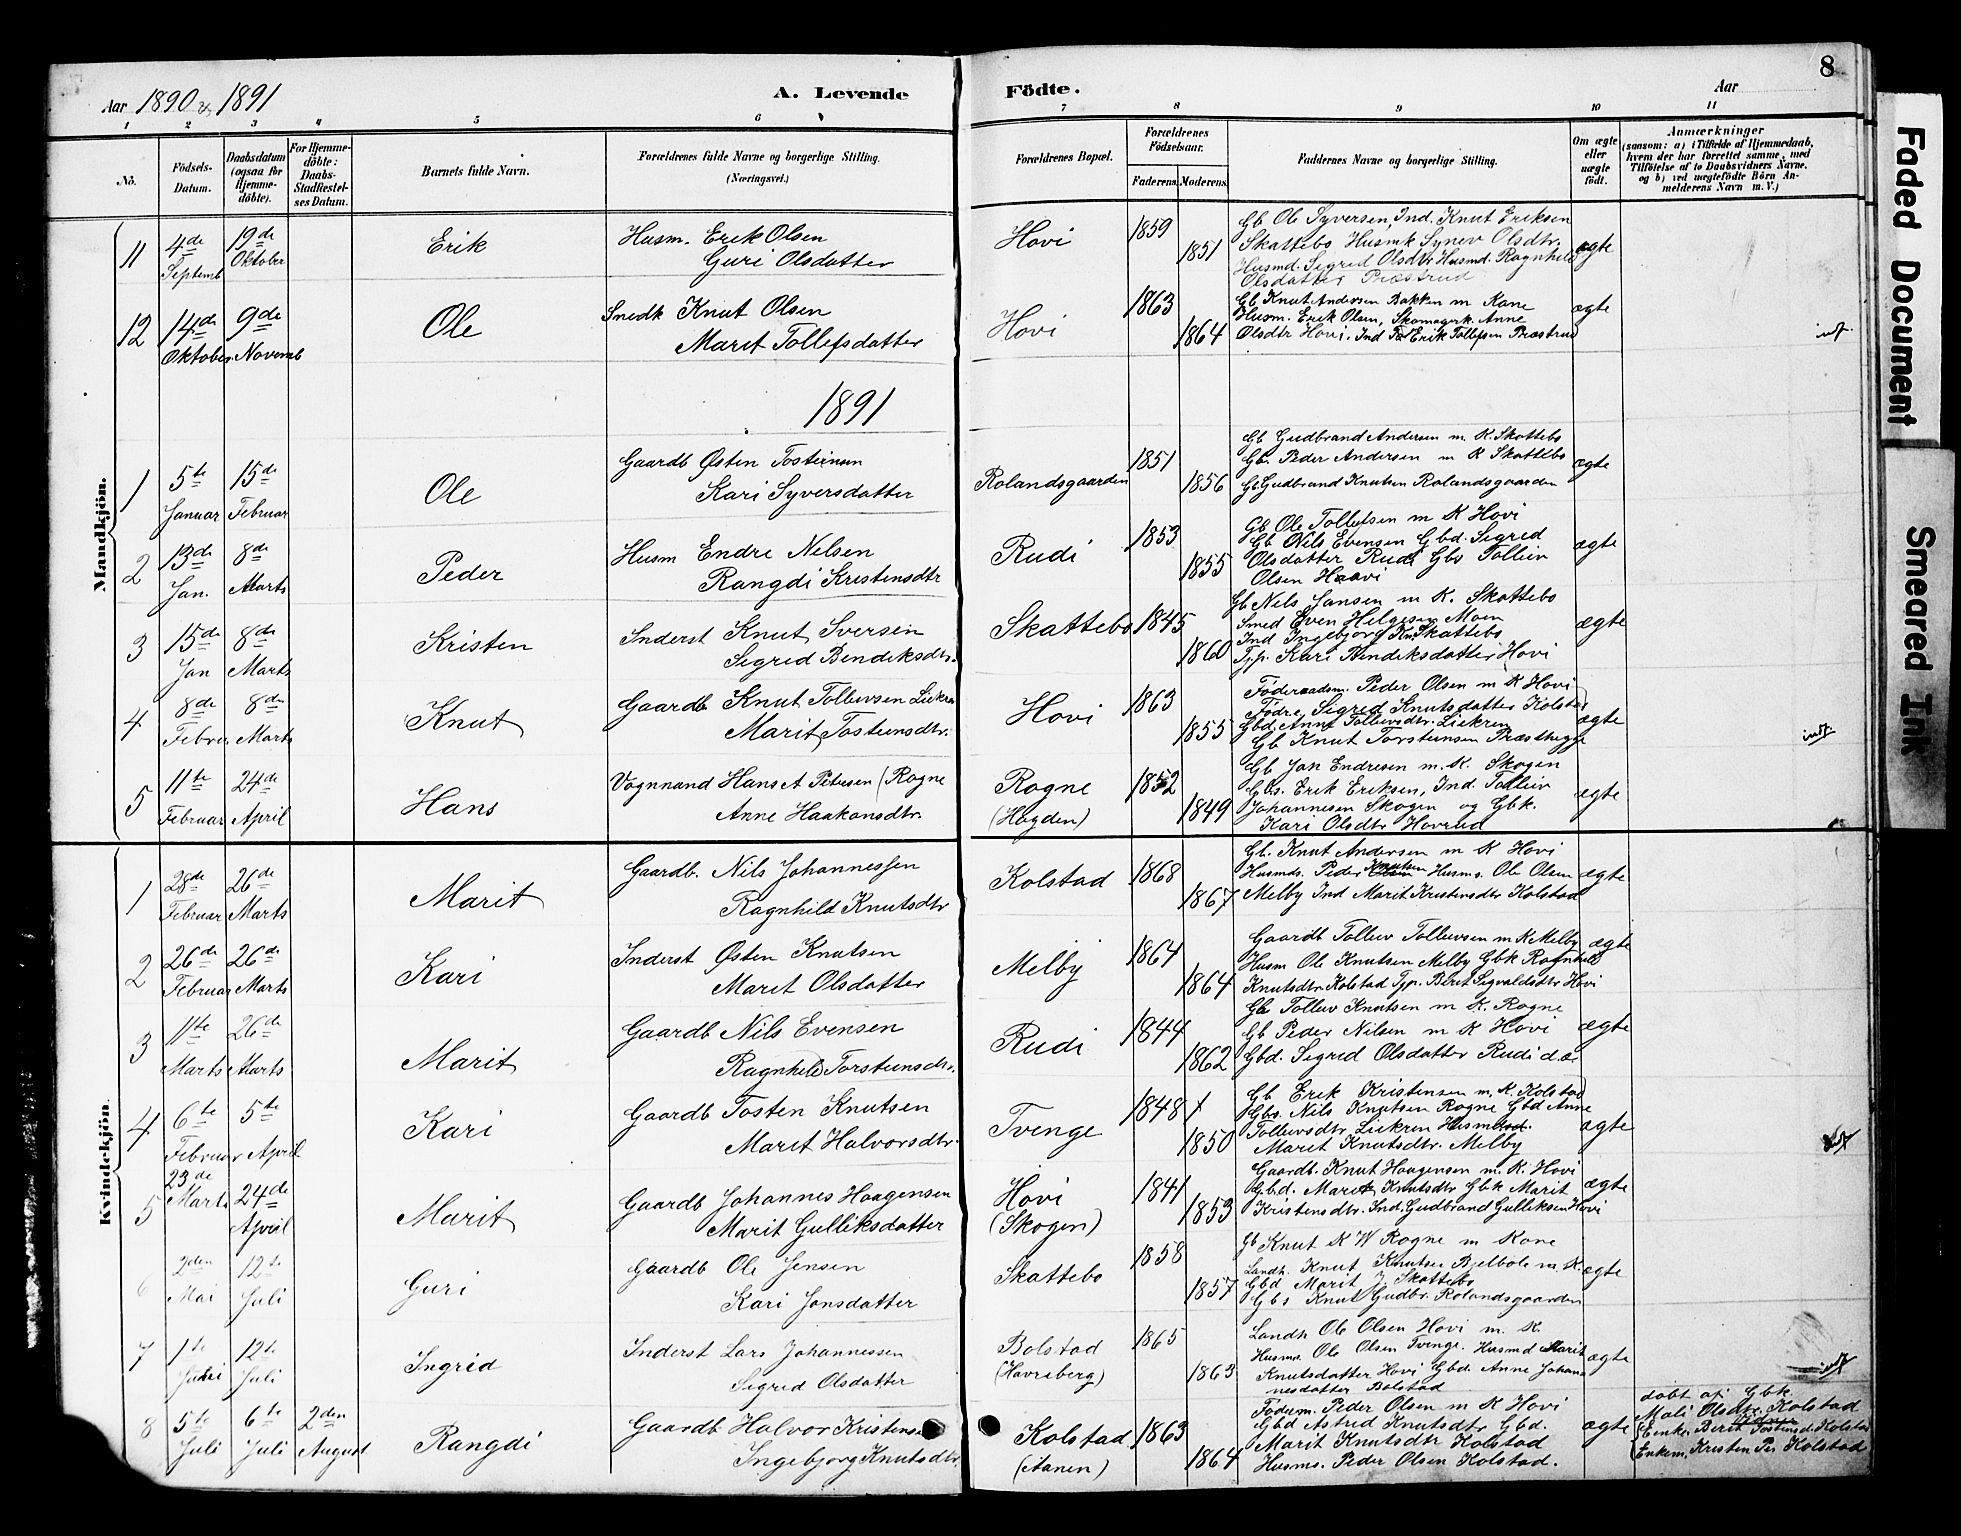 8
Aar 1890 & 1891
A. Levende Födte.
Aar
1 2 3 4 5 6 7 8 9 10 11
No.
Födsels-Datum.
Daabsdatum (ogsaa for Hjemme-döbte).
For Hjemme-döbte: Daabs-Stadfæstel-ses Datum.
Barnets fulde Navn.
Forældrenes fulde Navne og borgerlige Stilling. (Næringsvei.)
Forældrenes Bopæl.
Forældrenes Födselsaar.
Faderens. Moderens.
Faddernes Navne og borgerlige Stilling.
Om ægte eller uægte födt.
Anmærkninger
(saasom: a) i Tilfælde af Hjemmedaab, hvem der har forrettet samme, med Tilföielse af to Daabsvidners Navne, og b) ved uægtefödte Börn An-melderens Navn m. V.)
Mandkjön.
11 4de Septemb 19de Oktober Erik
Husm. Erik Olsen
Guri Olsdatter
Hovi 1859 1851
Gb Ole Syversen, Ind. Knut Eriksen
Skattebo Husmk Synev Olsdtr.
Husmd. Sigrid Olsdtr Husmd. Ragnhild
Olsdatter Præstrud
ægte
12 14de Oktober 9de Novemb Ole
Smedk Knut Olsen
Marit Tollefsdatter
Hovi 1863 1864
Gb Knut Andersen Bakken m Kone
Husm. Erik Olsen, Skomagerk. Anne
Olsdtr Hovi. Ind Erik Tollefsen Præstrud
ægte
indf.
1891
1 5te Januar 15de Februar Ole
Gaardb Østen Tosteinsen
Kari Syversdatter
Rolandsgaarden 1851 1856
Gb Gudbrand Andersen m. K. Skattebo
Gb. Peder Andersen m K Skattebo
Gb Gudbrand Knutsen Rolandsgaarden
ægte
2 13de Jan. 8de Marts Peder
Husm Endre Nilsen
Rangdi Kristensdtr
Rudi 1853 1855
Gb Ole Tollefsen m K Hovi
Gb Nils Evensen Gbd. Sigrid
Olsdatter Rudi Gbs Tolleiv
Olsen Haavi
ægte
3 15de Jan 8de Marts Kristen
Inderst Knut Iversen
Sigrid Bendiksdtr.
Skattebo 1845 1860
Gb Nils Jansen m K. Skattebo
Smed Even Helgesen Moen
Ind Ingebjorg Kn. Skattebo
Typ. Kari Bendiksdatter Hovi
ægte
4 8de Febru 8de Marts Knut
Gaardb Knut Tollevsen Liekren
Marit Tosteinsdtr.
Hovi 1863 1855
Föderaadsm. Peder Olsen m K Hovi
Födre Sigrid Knutsdatter Kolstad
Gbd. Anne Tollevsdtr. Liekren
Gb Knut Torsteinsen Præsthegge
ægte
indf.
5 11te Februar 24de April Hans
Vognmand Hans A Petersen (Rogne
Anne Haakonsdtr.
Rogne (Hagden) 1852 1849
Gb. Jon Endresen m. K. Skogen
Gbs. Erik Eriksen, Ind. Tolleiv
Johannesen Skogen og Gbk.
Kari Olsdtr Hovrud
ægte
Kvindekjön.
1 28de Februar 26de Marts Marit
Gaardb. Nils Johannessen
Ragnhild Knutsdtr
Kolstad 1868 1867
Gb. Knut Andersen m K Hovi
Husmds. Peder Knutsen Husms. Ole Olsen
Melby Ind Marit Kristensdtr Kolstad
ægte
2 26de Februar 26de Marts Kari
Inderst Østen Knutsen
Marit Olsdatter
Melby 1864 1864
Gaardb Tollev Tollevsen m K Melby
Husm Ole Knutsen Melby Gbk Ragnhild
Knutsdtr. Kolstad Typ. Berit Sigvaldsdtr Hovi
ægte
3 11te Marts 26de Marts Marit
Gaardb Nils Evensen
Ragnhild Torsteinsdtr.
Rudi 1844 1862
Gb Tollev Knutsen m K. Rogne
Gb Peder Nilsen m K Hovi
Gbd. Sigrid Olsdatter Rudi d.æ
ægte
4 6te Februar 5te April Kari
Gaardb Tosten Knutsen
Marit Halvorsdtr.
Tvenge 1848 1850
Gb Erik Kristensen m. K. Kolstad
Gbs. Nils Knutsen Rogne Gbd Anne
Tollevsdtr. Liekren
Marit Knutsdtr. Melby
ægte
indf
5 23de Marts 24de April Marit
Gaardb Johannes Haagensen
Marit Gulliksdatter
Hovi (Skogen) 1841 1853
Gaardb. Knut Haagensen m. K. Hovi
Gbd. Marit Knutsdtr Gbk Marit
Kristensdtr. Ind. Gudbrand Gulliksen Hovi
ægte
6 2den Mai 12te Juli Guri
Gaardb Ole Jensen
Kari Jonsdatter
Skattebo 1858 1857
Gb Knut K W Rogne m Kone
Landh. Knut Knutsen Bjelbole m. K.
Gbd Marit J. Skattebo
Gbs Knut Gudbr. Rolandsgaarden
ægte
7 1te Juni 12te Juli Ingrid
Inderst Lars Johannessen
Sigrid Olsdatter
Bolstad (Havreberg) 1865 1863
Landh Ole Olsen Hovi m. K.
Husms. Ole Olsen Tvenge. Husmd Marit
Knutsdatter Hovi Gbd. Anne Johan
nesdatter Bolstad
ægte
indf
8 5te Juli 6te Juli 2den August Rangdi
Gaardb Halvor Kristens
Ingebjorg Knutsdtr.
Kolstad (Aanen) 1863 1864
Föderm. Peder Olsen m K Hovi
Gbd Astrid Knutsdtr Gbd.
Marit Knutsdtr Kolstad
Husms. Peder Olsen Kolstad.
ægte
döbt af Gbk.
Mali Olsdtr. Kolstad
(Enke Berit Tostensd. Kolstad
Enkem. Kristen Pe Kolstad
Faded Document
Smeared Ink